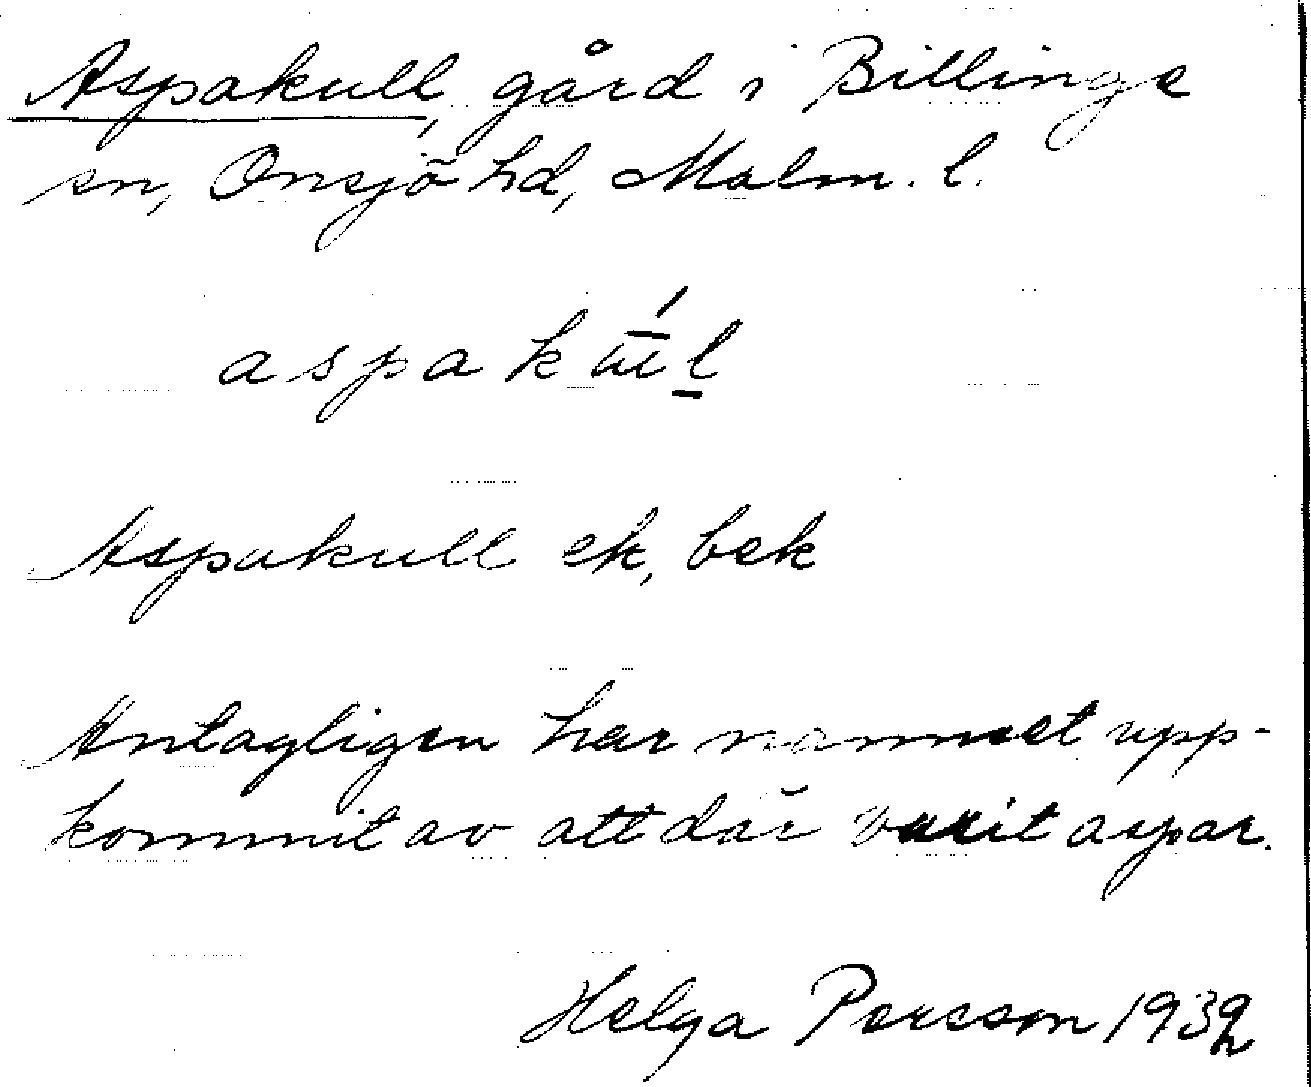 Aspakull, gård i Billinge
sn, Onsjö hd, Malm. l.
Aspakull ek, bek
Antagligen har namnet upp-
kommit av att där varit aspar.
Helga Persson 1932